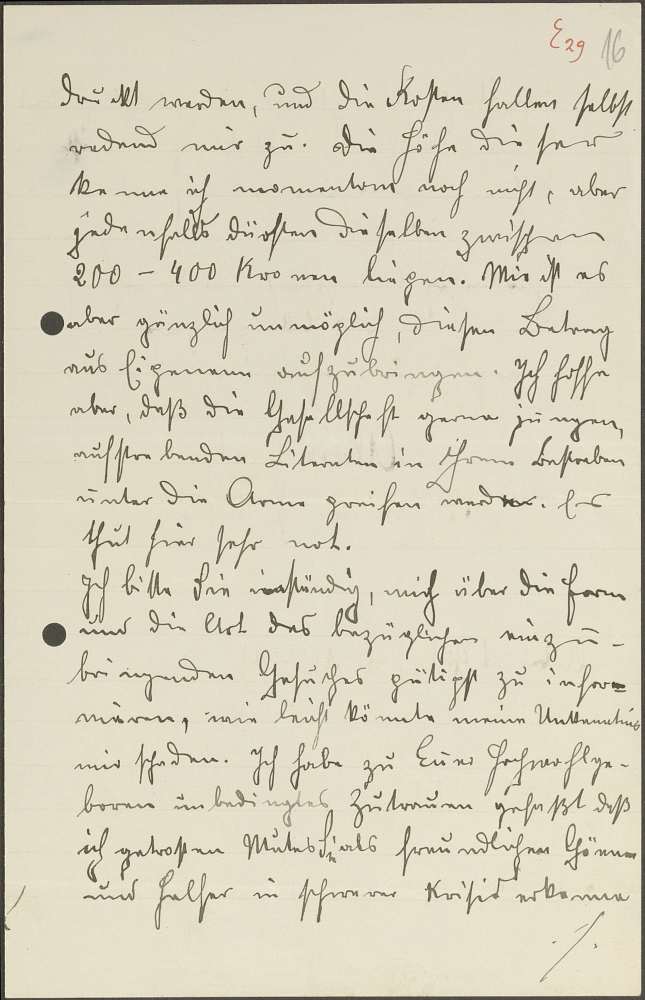 E29 16
druckt werden, und die Kosten fallen selbst
redend mir zu. Die Höhe dieser
kenne ich momentan noch nicht, aber
jedenfalls dürften dieselben zwischen
200 – 400 Kronen liegen. Mir ist es
aber gänzlich unmöglich, diesen Betrag
aus Eigenem aufzubringen. Ich hoffe
aber, daß die Gesellschaft gerne jungen,
aufstrebenden Literaten in ihrem Bestreben
unter die Arme greifen werden. Es
thut hier sehr not.
Ich bitte Sie inständig, mich über die Form
und die Art des bezüglichen einzu-
bringenden Gesuches gütigst zu infor-
mieren, wie leicht könnte meine Unkenntnis
mir schaden. Ich habe zu Euer Hochwohlge-
boren unbedingtes Zutrauen gefaßt daß
ich getrosten Mutes Sie als freundlichen Gönner
und Helfer in schwerer Krisis erkenne
./.